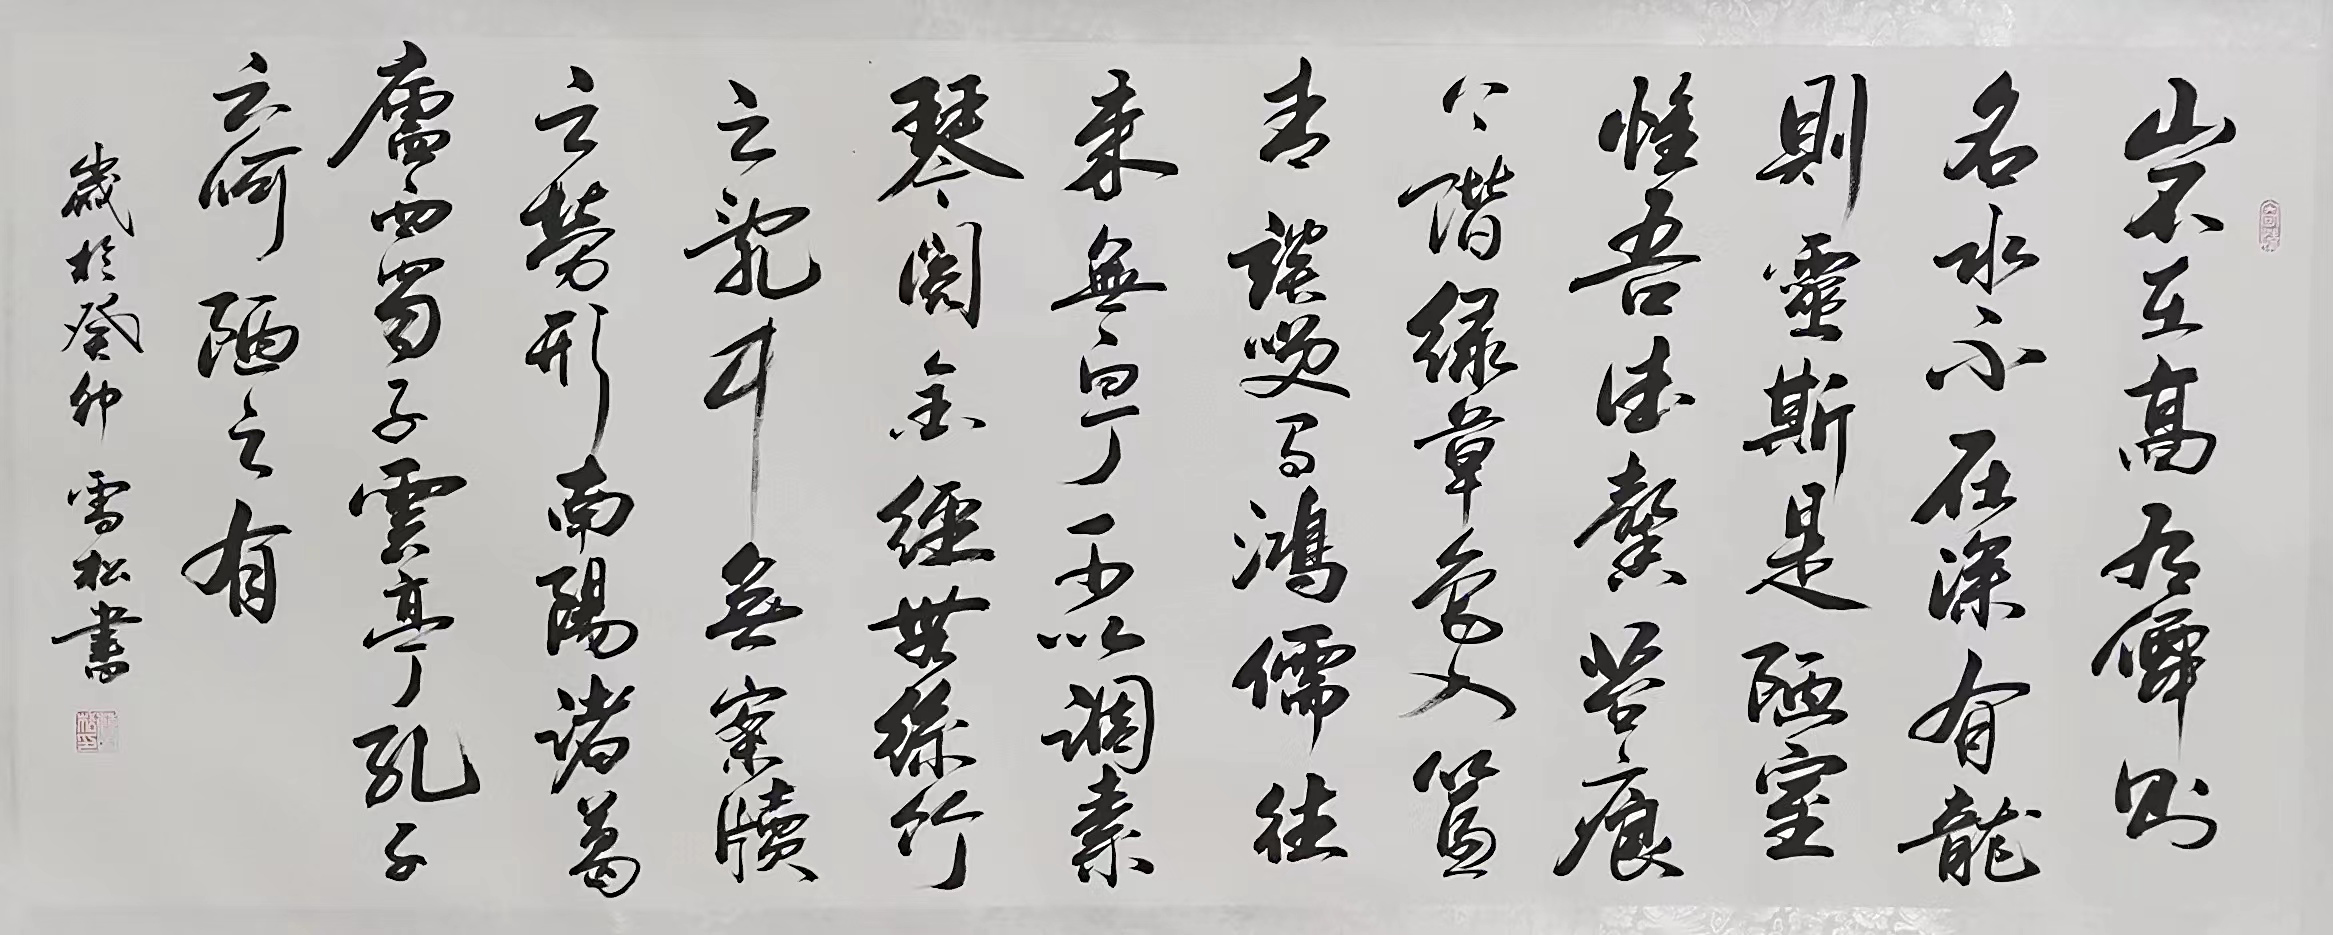 山不在高有僊則
名水不在深有龍
則靈斯是陋室
惟吾德馨苔痕
上階綠草色入簾
青談咲有鴻儒往
來無白丁可以調素
琴閱金經無絲竹
之亂耳無案牘
之勞形南陽諸葛
廬西蜀子雲亭孔子
云何陋之有
歲於癸卯雪松書